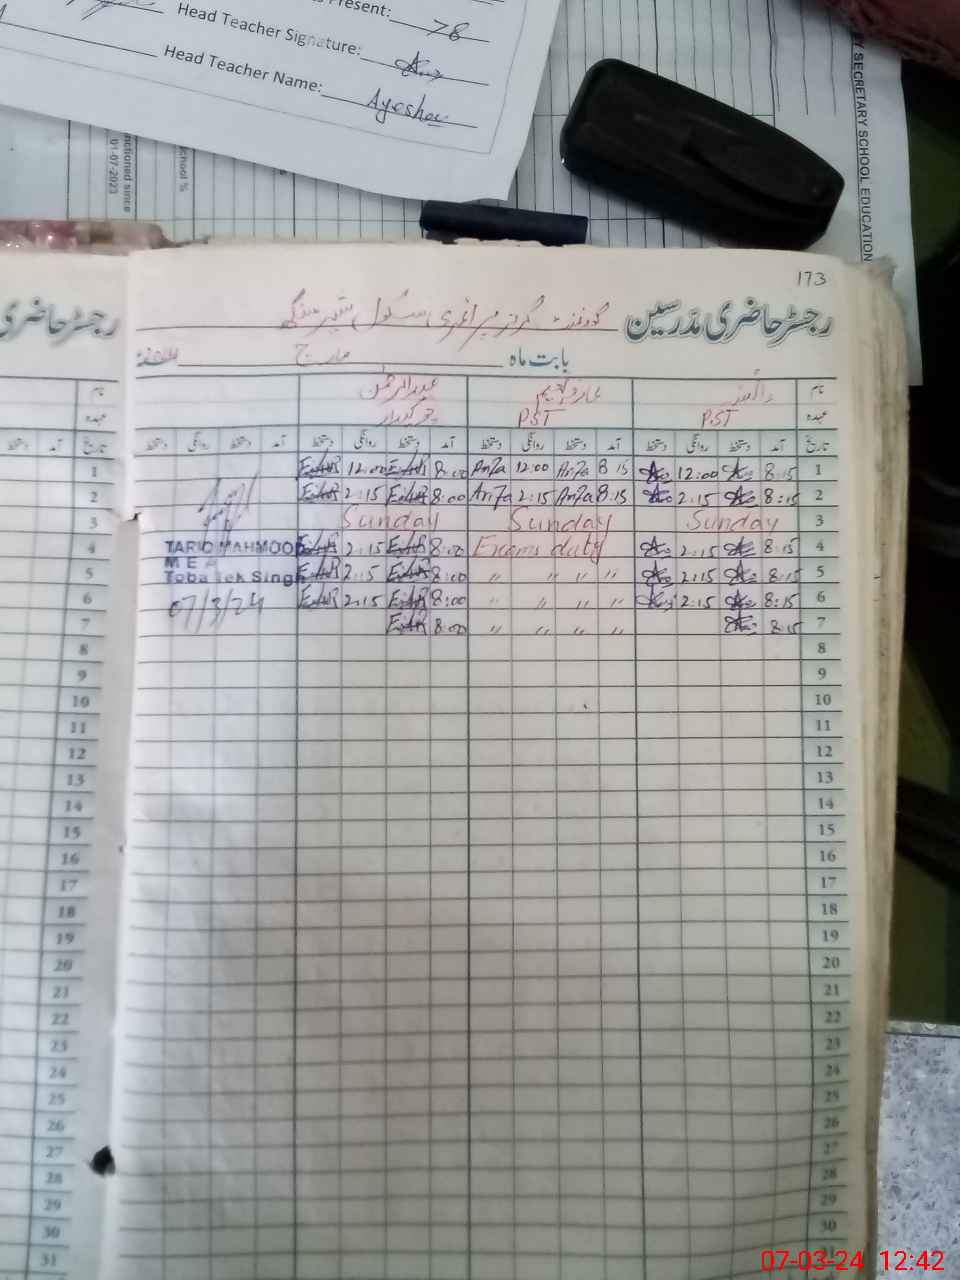 Present: 78
Head Teacher Signature:
Head Teacher Name: Ayesha
SECRETARY SCHOOL EDUCATION
chool %
nctioned since
01-07-2023
173
رجسٹر حاضری مدرسین گورنمنٹ گرلز پرائمری سکول
رجسٹر حاضری
بابت ماہ مارچ
نام عبدالرحمن
عہدہ PST PST چوکیدار
تاریخ آمد دستخط روانگی دستخط آمد دستخط روانگی دستخط آمد دستخط روانگی دستخط آمد دستخط روانگی دستخط
تاریخ آمد دستخط
1 8:15 12:00 8:15 Ariza 12:00 Ariza 8:00 12:00
2 8:15 2:15 8:15 Ariza 2:15 Ariza 8:00 2:15
3 Sunday Sunday Sunday
4 8:15 2:15 Exams duty 8:00 2:15
5 8:15 2:15 " " " " 8:00 2:15
6 8:15 2:15 " " " " 8:00 2:15
7 8:15 " " " " 8:00
TARIQ MAHMOOD
MEA
Toba Tek Singh
07/3/24
8
9
10
11
12
13
14
15
16
17
18
19
20
21
22
23
24
25
26
27
28
29
30
1
2
3
4
5
6
7
8
9
10
11
12
13
14
15
16
17
18
19
20
21
22
23
24
25
26
27
28
29
30
31
07-03-24 12:42